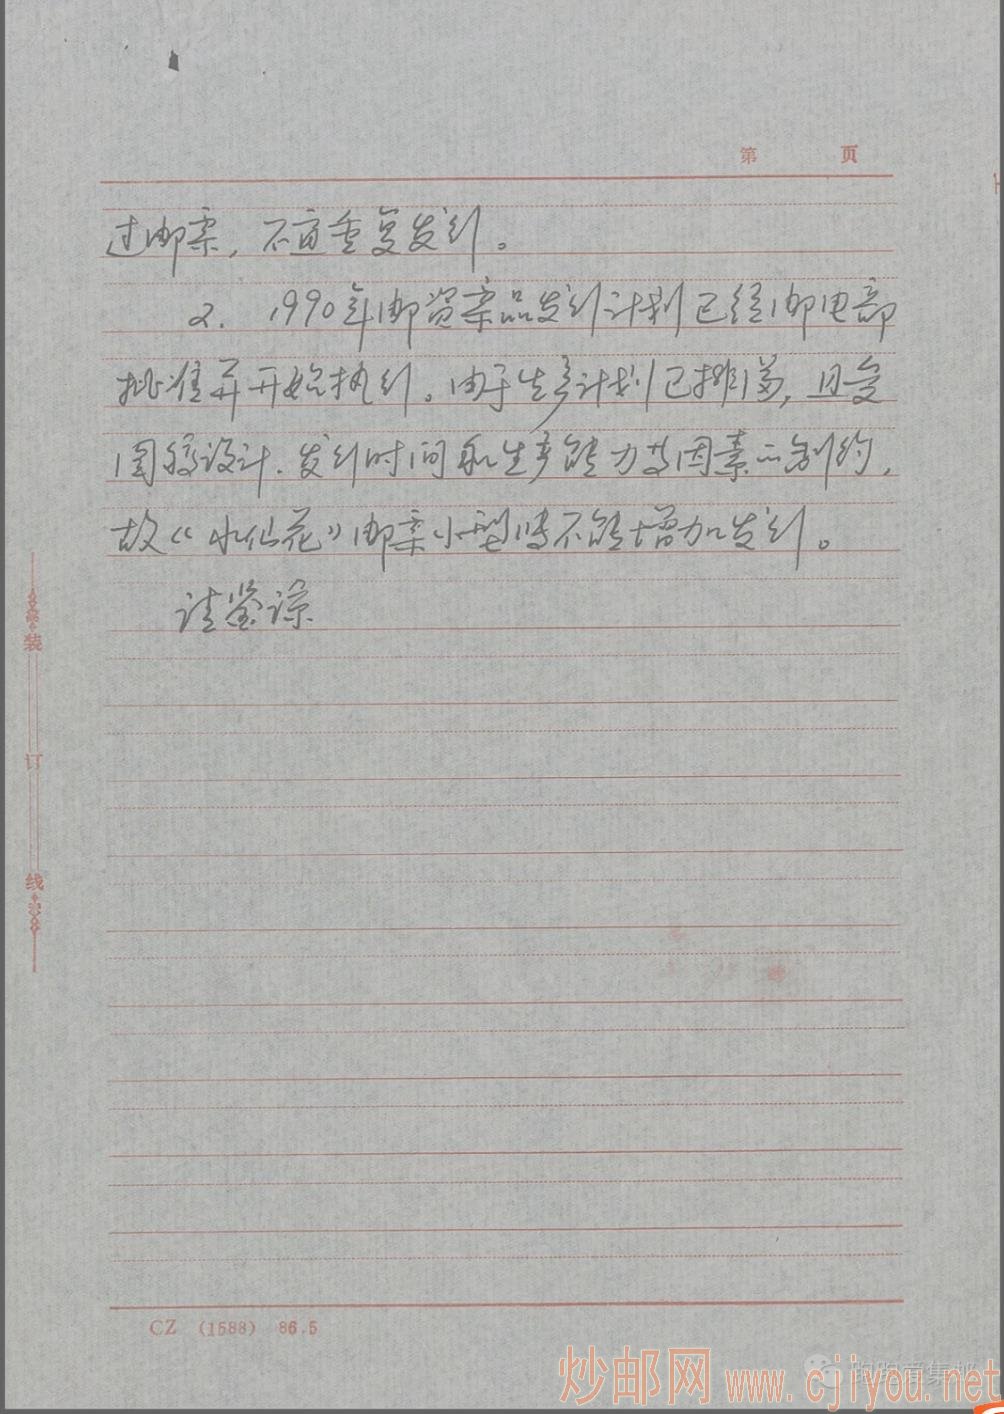 第 页
过邮票，不宜重复发行。
2. 1990年邮资票品发行计划已经邮电部
批准并开始执行。由于生产计划已排满，且受
图稿设计、发行时间和生产能力等因素的制约，
故《水仙花》邮票小型张不能增加发行。
请鉴谅
装
订
线
CZ (1588) 86.5
跑跑爱集邮
炒邮网 www.cjiyou.net